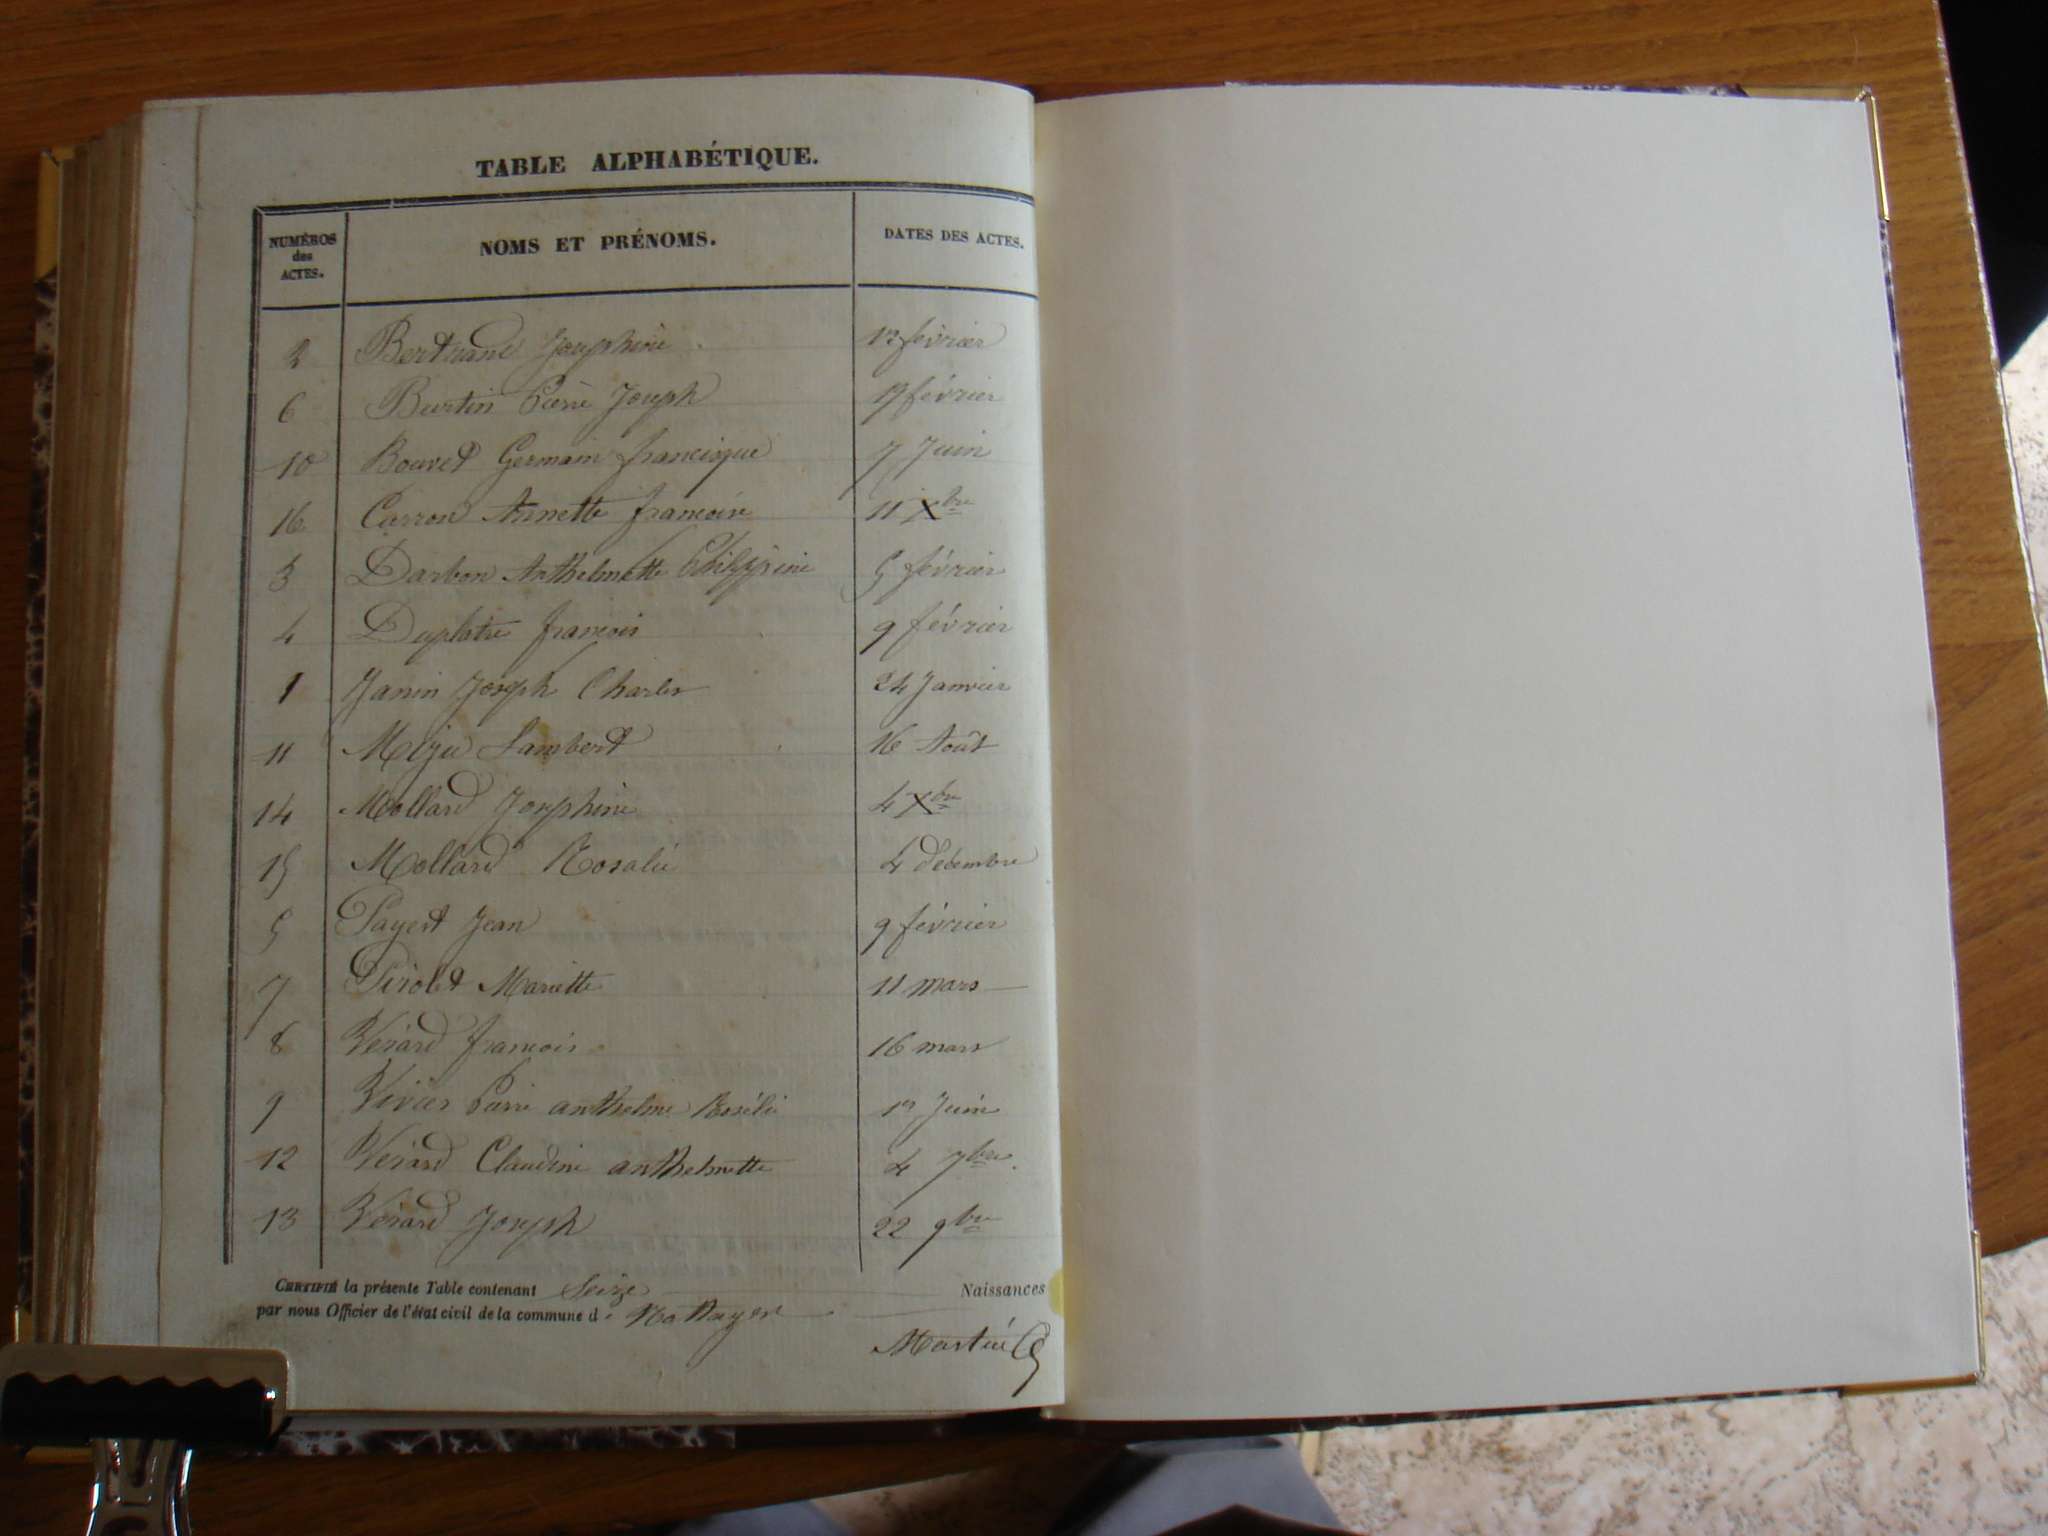 TABLE ALPHABÉTIQUE.
NUMÉROS des ACTES. NOMS ET PRÉNOMS. DATES DES ACTES.
2 Bertrand Josephine 1er février
6 Burtin Pierre Joseph 17 février
10 Bouvet Germain francisque 7 Juin
16 Carron Annette francoise 11 Xbre
3 Darbon Anthelmette Philippine 5 février
4 Duplatre francois 9 février
1 Janin Joseph Charles 24 Janvier
11 Lambert 16 Août
14 Mollard Josephine 4 Xbre
15 Mollard Rosalie 4 décembre
5 Payert Jean 9 février
7 Pirolet Mariette 11 mars
8 Vérard francois 16 mars
9 Vivier Pierre anthelme 1er Juin
12 Vérard Claudine anthelmette 4 7bre
13 Vérard Joseph 22 9bre
CERTIFIÉ la présente Table contenant Seize Naissances
par nous Officier de l'état civil de la commune de Nattages